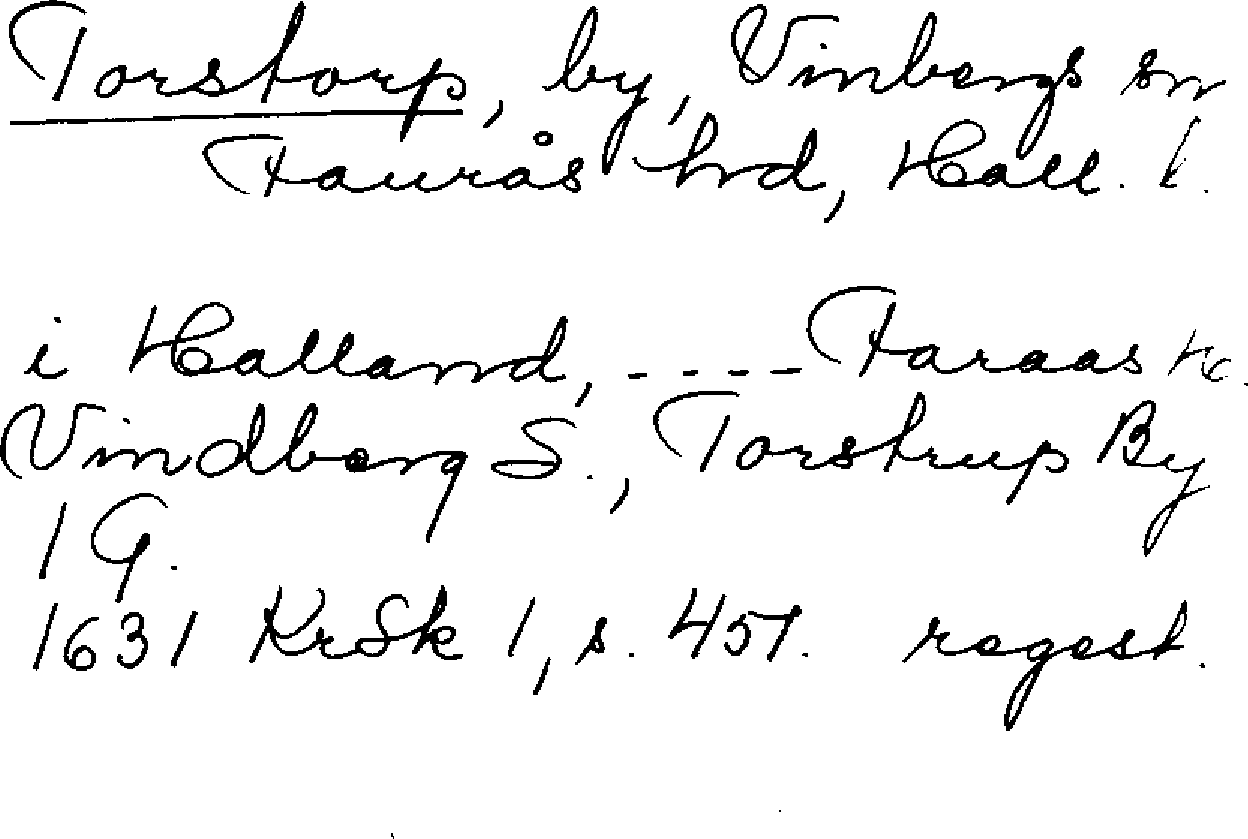 Torstorp, by, Vinbergs sn
Faurås hrd, Hall. l.
i Halland, ---- Faraas H.
Vindberg S., Torstrup By
1 G.
1631 KrSk 1, s. 457. regest.